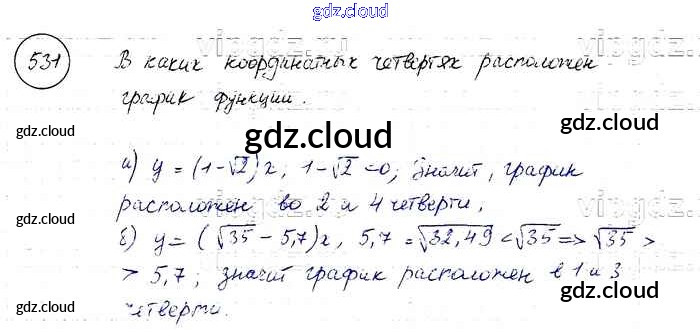 gdz.cloud
531 В каких координатных четвертях расположен
график функции.
gdz.cloud
gdz.cloud
gdz.cloud
а) y = (1-√2)x, 1-√2 <0, значит, график
расположен во 2 и 4 четверти,
б) y = (√35 - 5,7)x, 5,7 = √32,49 < √35 => √35 >
> 5,7, значит график расположен в 1 и 3
четверти.
gdz.cloud
gdz.cloud
gdz.cloud